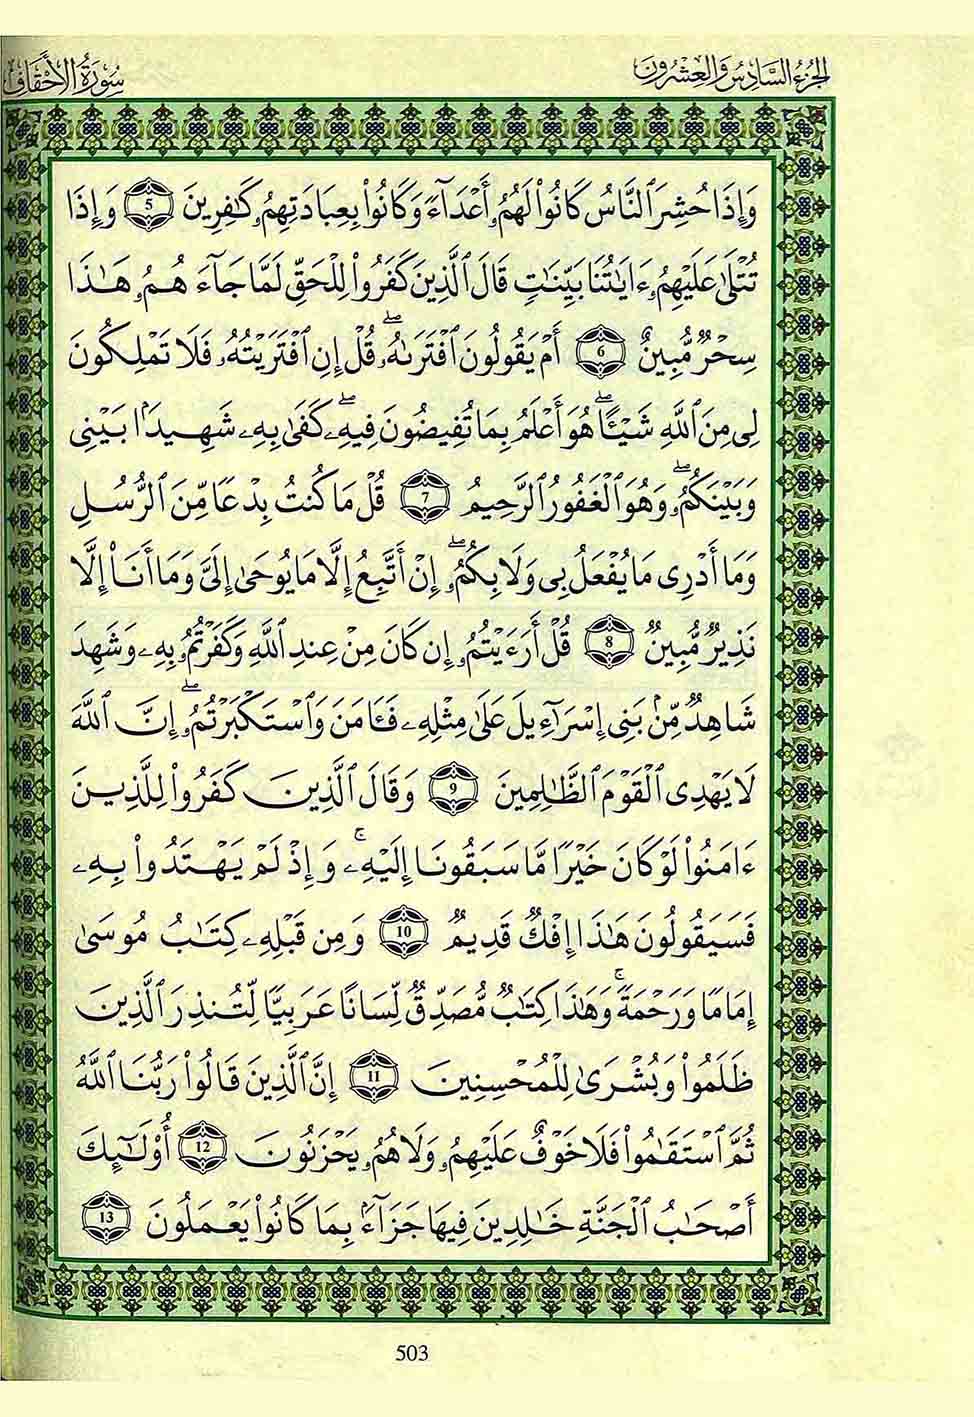 الجزء السادس والعشرون
سورة الأحقاف
وَإِذَا حُشِرَ ٱلنَّاسُ كَانُواْ لَهُمُۥٓ أَعْدَآءً وَكَانُواْ بِعِبَادَتِهِمُۥ كَٰفِرِينَ 5 وَإِذَا
تُتْلَىٰ عَلَيْهِمُۥٓ ءَايَٰتُنَا بَيِّنَٰتٍ قَالَ ٱلَّذِينَ كَفَرُواْ لِلْحَقِّ لَمَّا جَآءَ هُمُۥ هَٰذَا
سِحْرٌ مُّبِينٌ 6 أَمْ يَقُولُونَ ٱفْتَرَىٰهُۖ قُلْ إِنِ ٱفْتَرَيْتُهُۥ فَلَا تَمْلِكُونَ
لِى مِنَ ٱللَّهِ شَيْـًٔاۖ هُوَ أَعْلَمُ بِمَا تُفِيضُونَ فِيهِۖ كَفَىٰ بِهِۦ شَهِيدَۢا بَيْنِى
وَبَيْنَكُمُۥۖ وَهُوَ ٱلْغَفُورُ ٱلرَّحِيمُ 7 قُلْ مَا كُنتُ بِدْعًا مِّنَ ٱلرُّسُلِ
وَمَا أَدْرِى مَا يُفْعَلُ بِى وَلَا بِكُمُۥۖ إِنْ أَتَّبِعُ إِلَّا مَا يُوحَىٰ إِلَىَّ وَمَا أَنَا۠ إِلَّا
نَذِيرٌ مُّبِينٌ 8 قُلْ أَرَءَيْتُمُۥ إِن كَانَ مِنْ عِندِ ٱللَّهِ وَكَفَرْتُمُۥ بِهِۦ وَشَهِدَ
شَاهِدٌ مِّنۢ بَنِى إِسْرَآءِيلَ عَلَىٰ مِثْلِهِۦ فَـَٔامَنَ وَٱسْتَكْبَرْتُمُۥۖ إِنَّ ٱللَّهَ
لَا يَهْدِى ٱلْقَوْمَ ٱلظَّٰلِمِينَ 9 وَقَالَ ٱلَّذِينَ كَفَرُواْ لِلَّذِينَ
ءَامَنُواْ لَوْ كَانَ خَيْرًا مَّا سَبَقُونَا إِلَيْهِۦۚ وَإِذْ لَمْ يَهْتَدُواْ بِهِۦ
فَسَيَقُولُونَ هَٰذَا إِفْكٌ قَدِيمٌ 10 وَمِن قَبْلِهِۦ كِتَٰبُ مُوسَىٰ
إِمَامًا وَرَحْمَةًۚ وَهَٰذَا كِتَٰبٌ مُّصَدِّقٌ لِّسَانًا عَرَبِيًّا لِّتُنذِرَ ٱلَّذِينَ
ظَلَمُواْ وَبُشْرَىٰ لِلْمُحْسِنِينَ 11 إِنَّ ٱلَّذِينَ قَالُواْ رَبُّنَا ٱللَّهُ
ثُمَّ ٱسْتَقَٰمُواْ فَلَا خَوْفٌ عَلَيْهِمُۥ وَلَا هُمُۥ يَحْزَنُونَ 12 أُوْلَٰٓئِكَ
أَصْحَٰبُ ٱلْجَنَّةِ خَٰلِدِينَ فِيهَا جَزَآءَۢ بِمَا كَانُواْ يَعْمَلُونَ 13
503